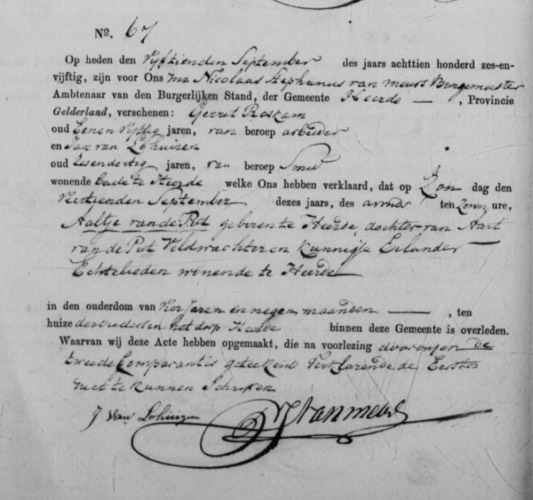 No. 67
Op heden den Vyftienden September des jaars achttien honderd zes-en-
vijftig, zijn voor Ons Mr Nicolaas Stephanus van Meurs Burgemeester
Ambtenaar van den Burgerlijken Stand, der Gemeente Heerde —, Provincie
Gelderland, verschenen: Gerrit Roskam
oud Eenen Vyftig jaren, van beroep arbeider
en Jan van Lohuizen
oud jaren, van beroep Smid
wonende beide te Heerde welke Ons hebben verklaard, dat op Zon dag den
Veertienden September dezes jaars, des avonds ten Zeven ure,
Aaltje van de Put geboren te Heerde, dochter van Aart
van de Put Veldwachter en Kunnigje Eilander
Echtelieden wonende te Heerde
in den ouderdom van Vier Jaren en negen maanden —, ten
huize der ouders in het dorp Heerde binnen deze Gemeente is overleden.
Waarvan wij deze Acte hebben opgemaakt, die na voorlezing door ons en de
tweede Comparant is geteekend Verklarende de Eerste
niet te kunnen Schryven
J van Lohuizen
VanMeurs